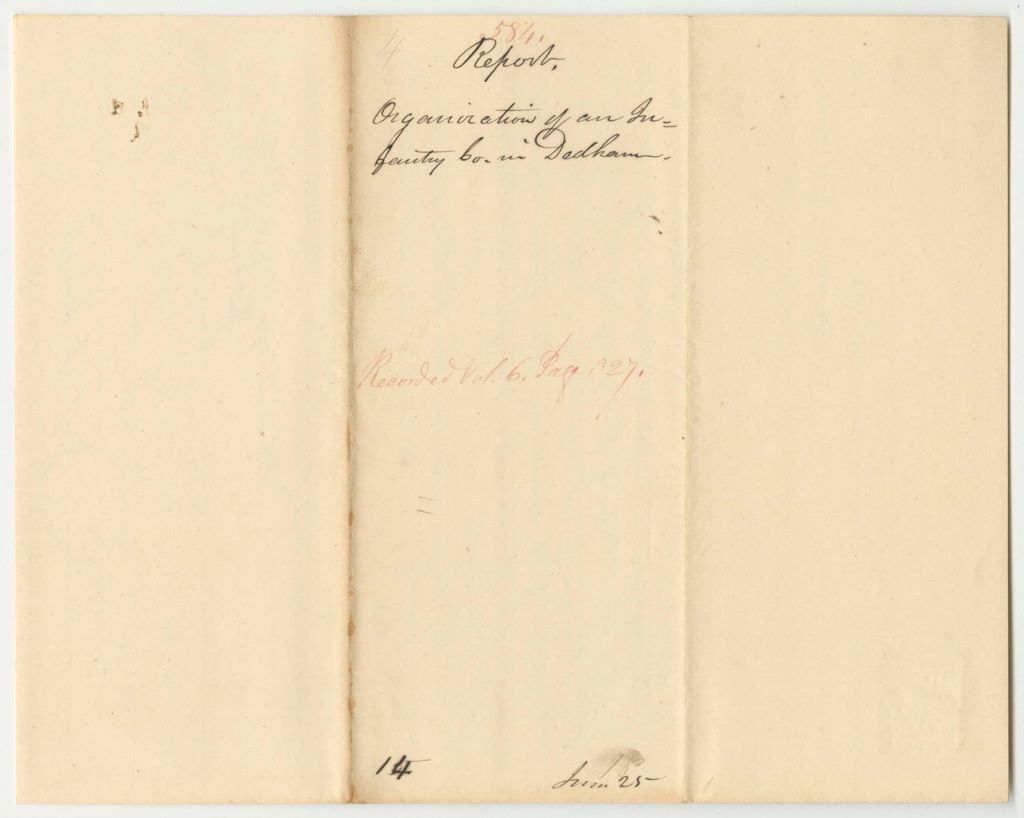 584.
4
Report.
Organization of an In=
fantry Co. in Dedham.
Recorded Vol. 6. Page 327.
14
June 25